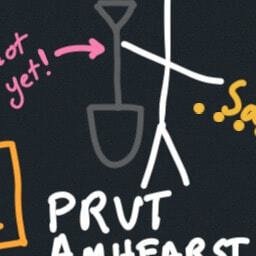 not
yet!
Sa
PRVT
AMHEARST